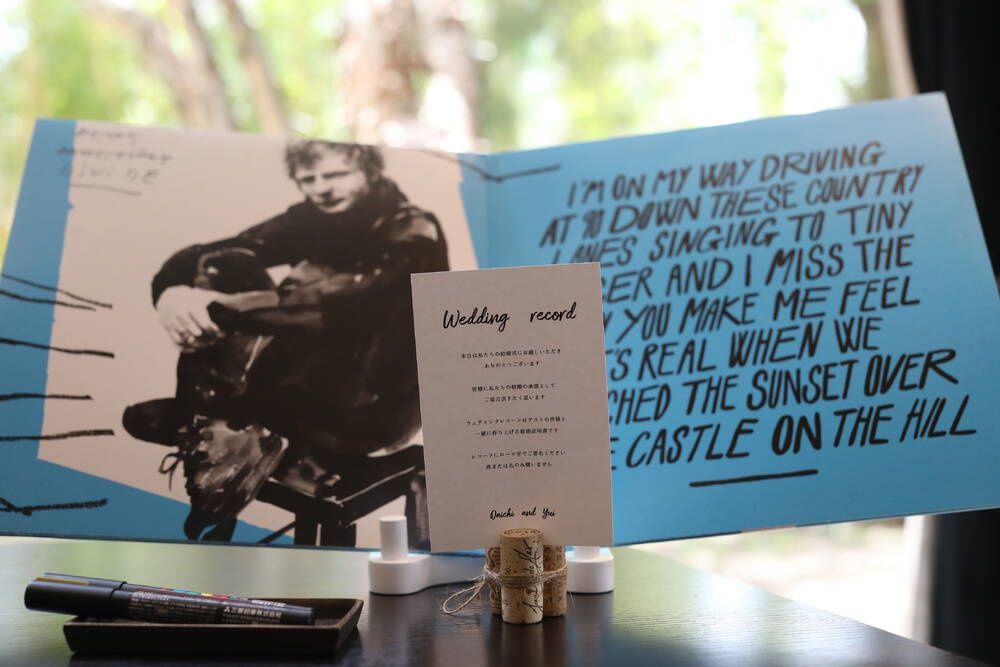 I'M ON MY WAY DRIVING
AT 90 DOWN THESE COUNTRY
LANES SINGING TO TINY
AND I MISS THE
YOU MAKE ME FEEL
REAL WHEN WE
THE SUNSET OVER
CASTLE ON THE HILL
Wedding record
本日は私たちの結婚式にお越しいただき
ありがとうございます
皆様に私たちの結婚の承認として
ご協力頂きたく思います
ウェディングレコードはゲストの皆様と
一緒に作り上げる結婚証明書です
レコードにローマ字でご署名ください
姓または名のみ構いません
Daichi and Yui
三菱鉛筆株式会社